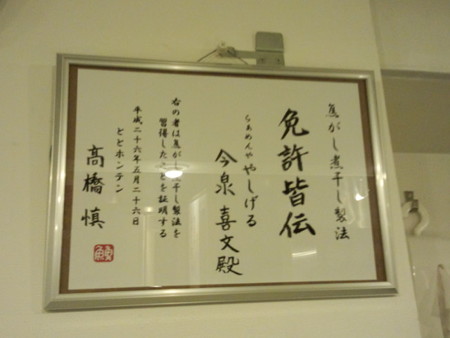 焦がし煮干し製法
免許皆伝
らぁめんや やしげる
今泉 喜文殿
右の者は焦がし煮干し製法を
習得したことを証明する
平成二十六年五月二十六日
ととホンテン
高橋 慎